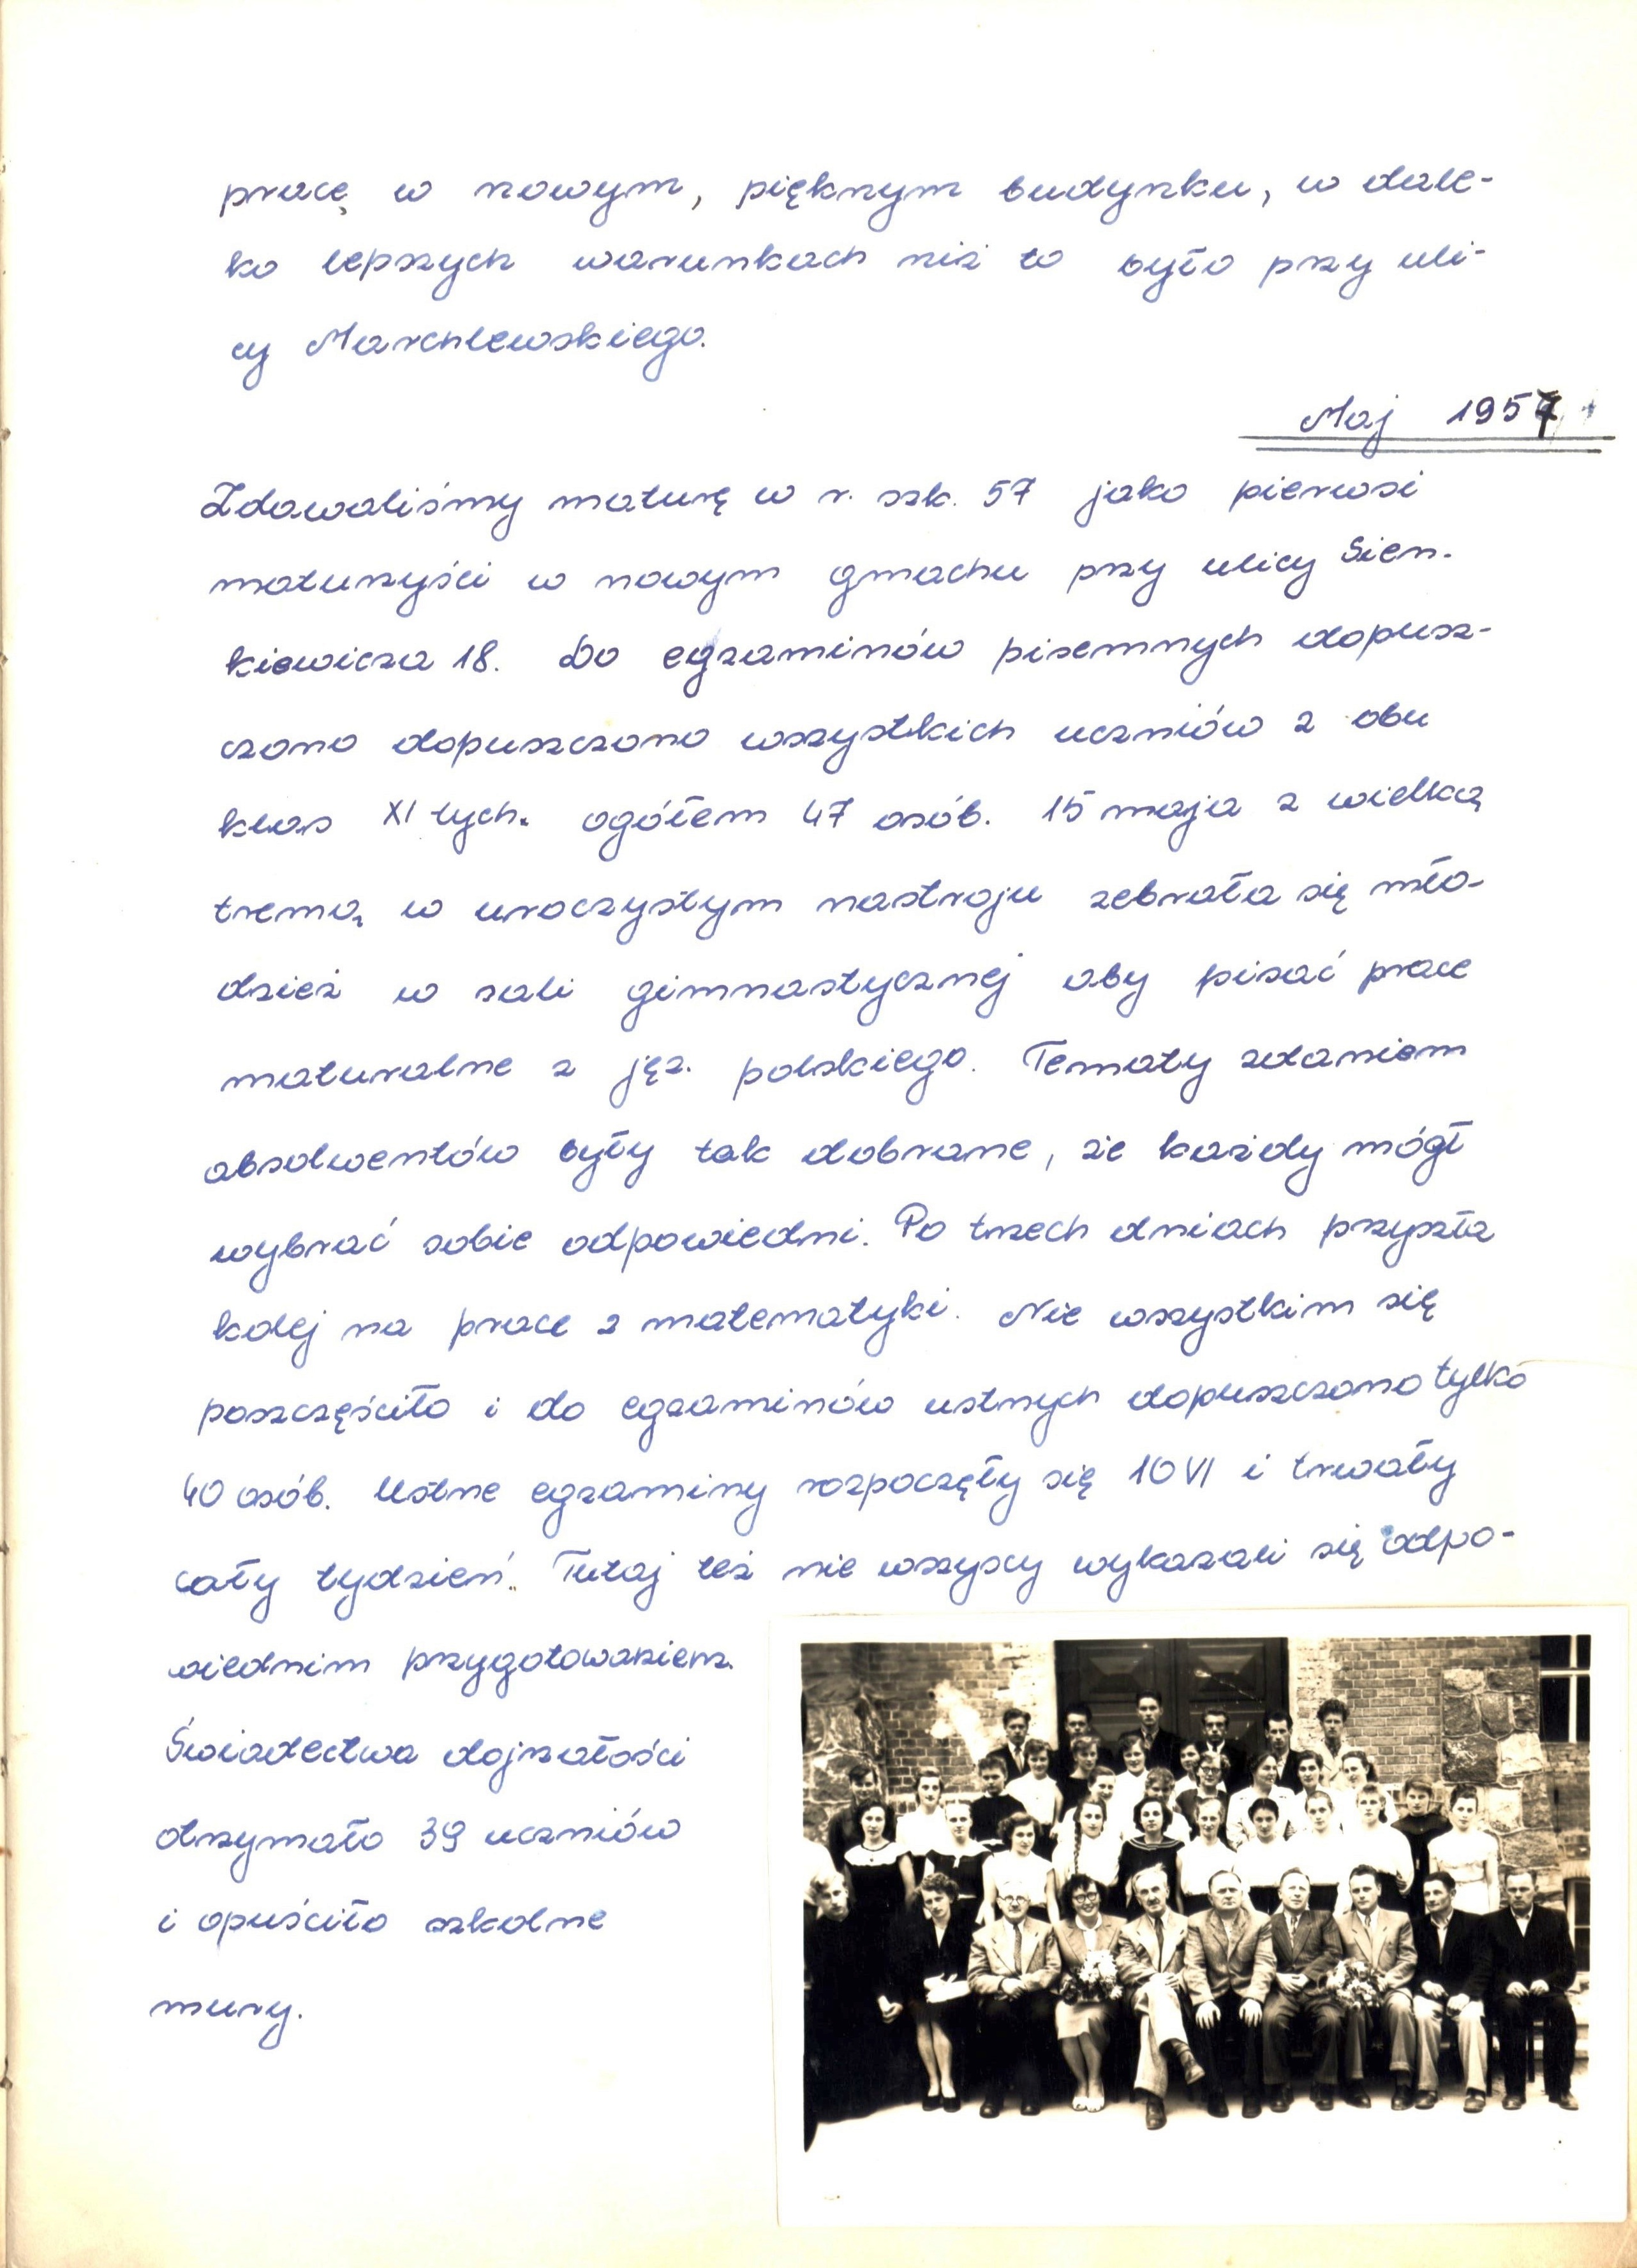 pracę w nowym, pięknym budynku, w dale-
ko lepszych warunkach niż to było przy uli-
cy Marchlewskiego.
Maj 1957
Zdawaliśmy maturę w r. szk. 57 jako pierwsi
maturzyści w nowym gmachu przy ulicy Sien-
kiewicza 18. Do egzaminów pisemnych dopusz-
czono dopuszczono wszystkich uczniów z obu
klas XI tych. ogółem 47 osób. 15 maja z wielką
tremą w uroczystym nastroju zebrała się mło-
dzież w sali gimnastycznej aby pisać prace
maturalne z jęz. polskiego. Tematy zdaniem
absolwentów były tak dobrane, że każdy mógł
wybrać sobie odpowiedni. Po trzech dniach przyszła
kolej na prace z matematyki. Nie wszystkim się
poszczęściło i do egzaminów ustnych dopuszczono tylko
40 osób. Ustne egzaminy rozpoczęły się 10 VI i trwały
cały tydzień. Tutaj też nie wszyscy wykazali się odpo-
wiednim przygotowaniem.
Świadectwa dojrzałości
otrzymało 39 uczniów
i opuściło szkolne
mury.